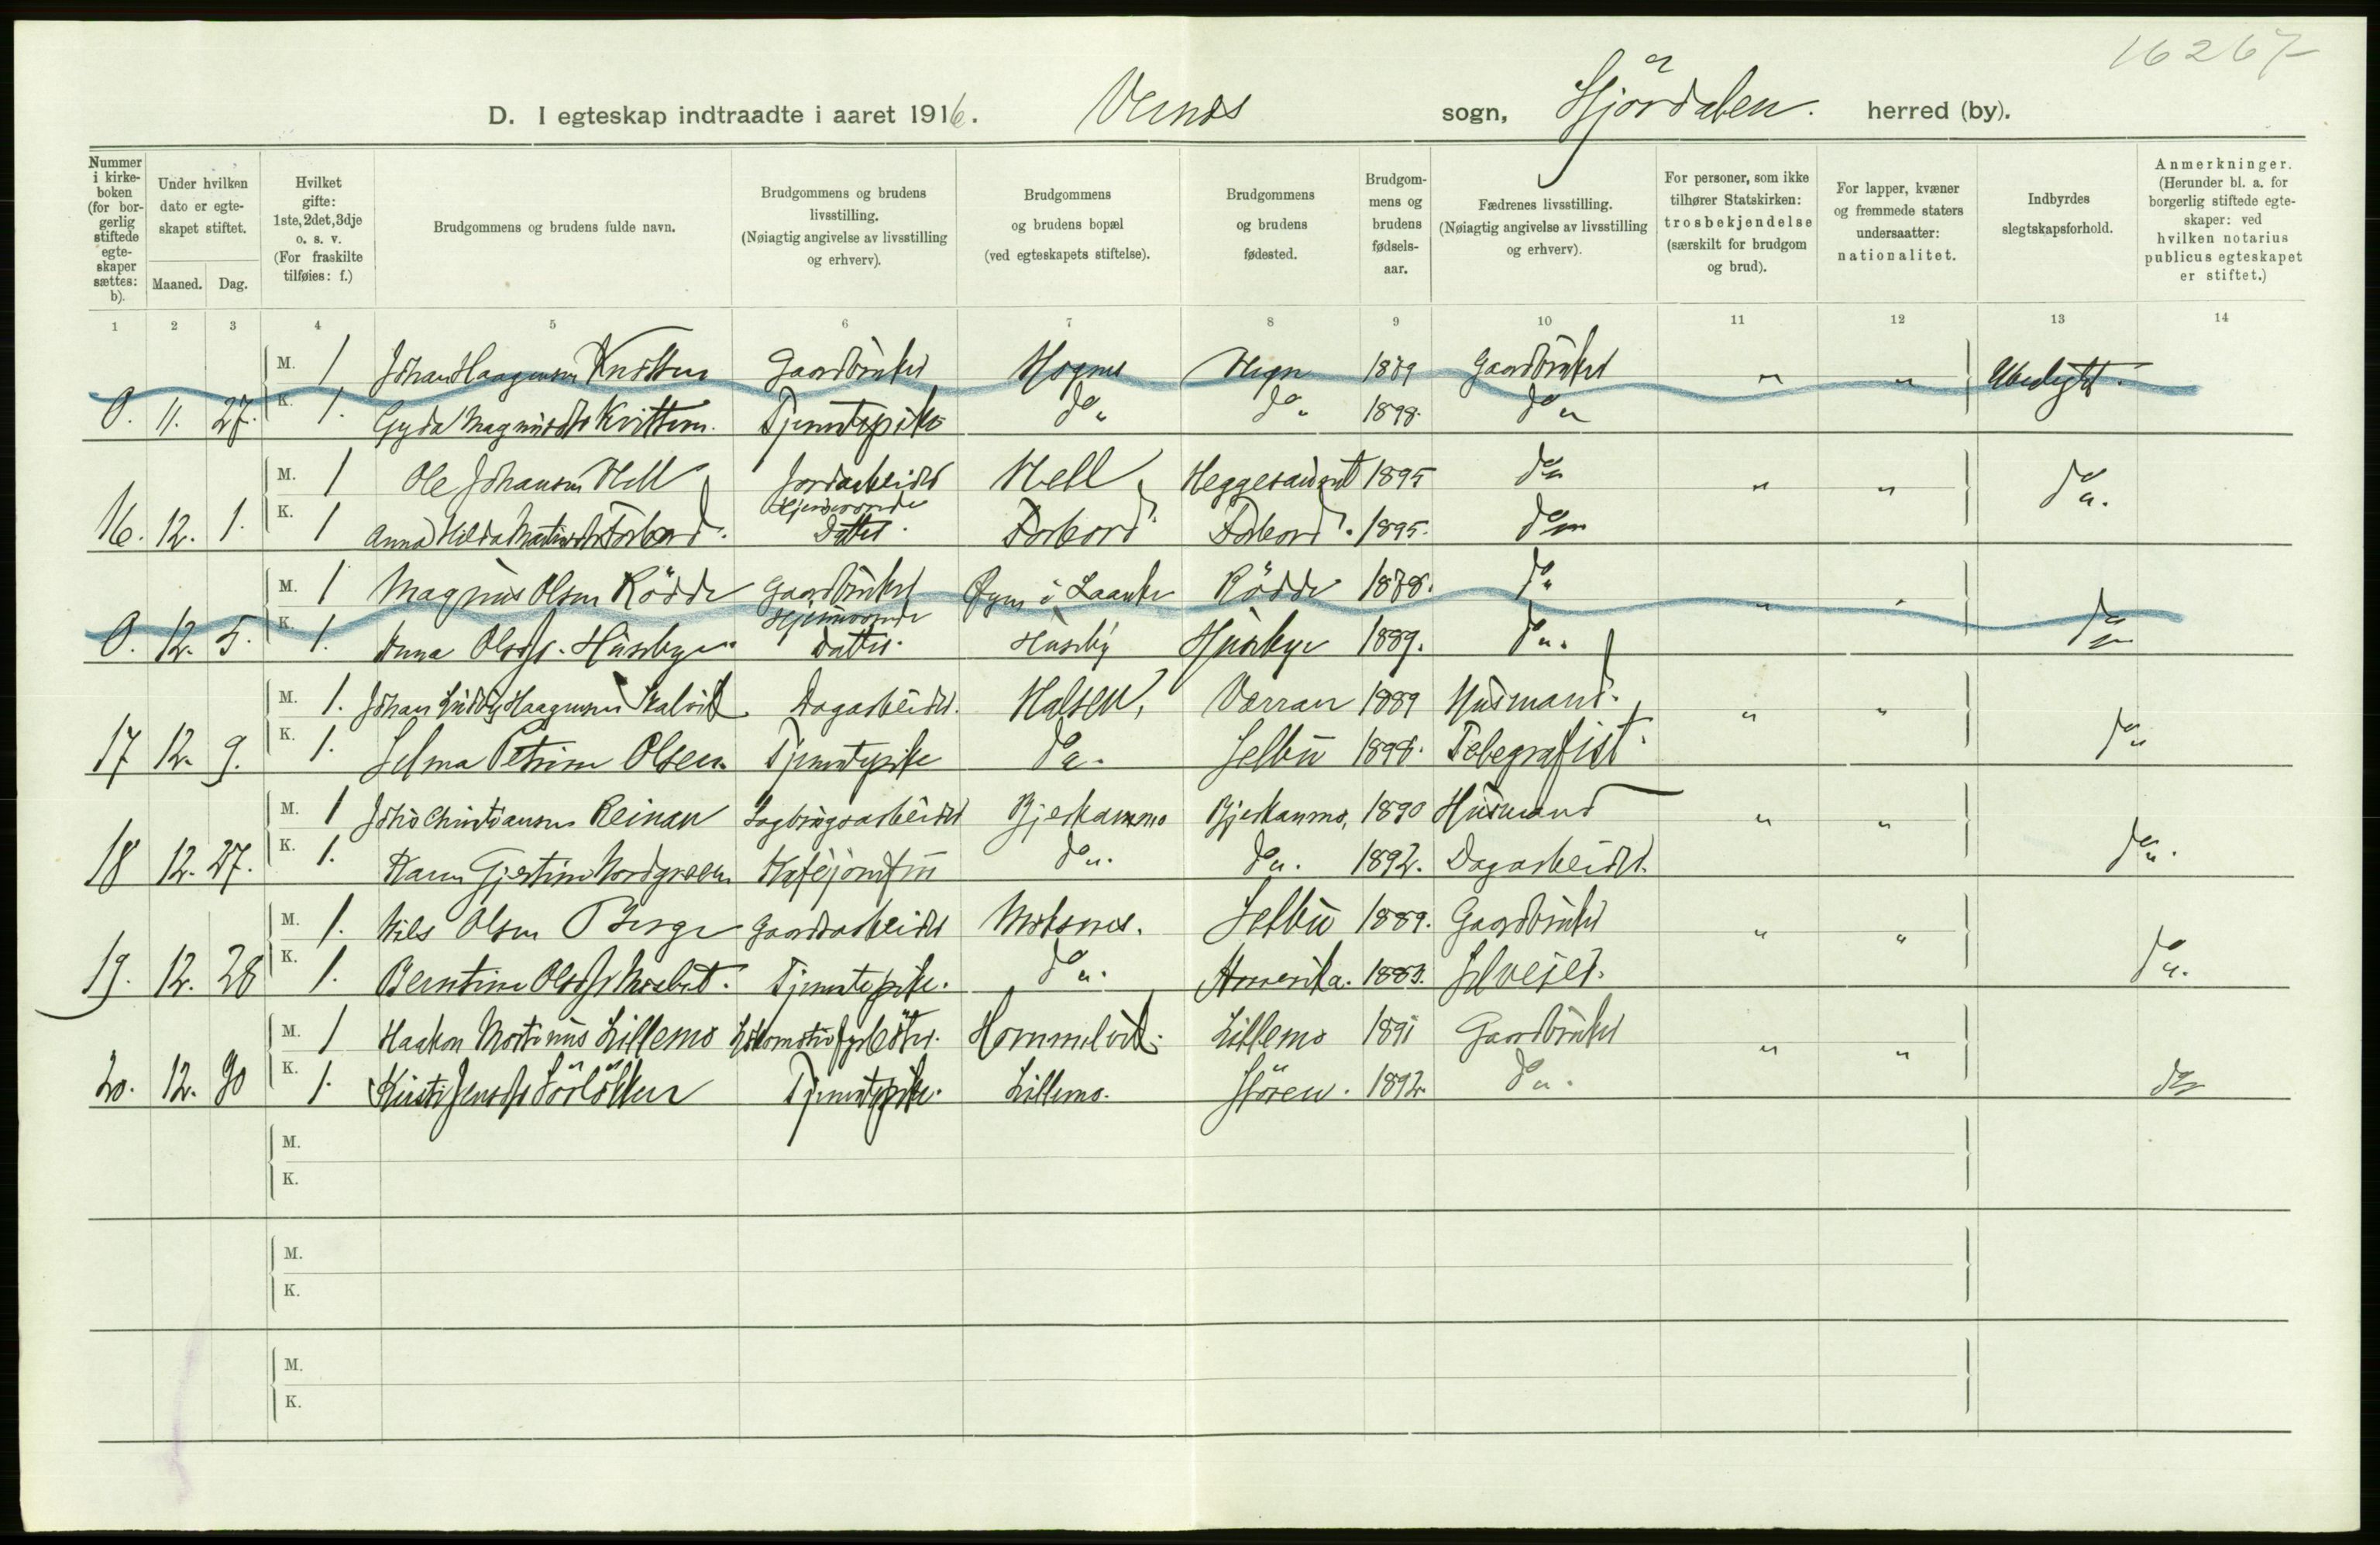 16267
D. I egteskap indtraadte i aaret 1916. Vernes sogn, Stjördalen. herred (by).
Nummer i kirke-boken (for bor-gerlig stiftede egte-skaper sættes: b).
Under hvilken dato er egte-skapet stiftet.
Maaned. Dag.
Hvilket gifte: 1ste, 2det, 3dje o. s. v. (For fraskilte tilføies: f.)
Brudgommens og brudens fulde navn.
Brudgommens og brudens livsstilling. (Nøiagtig angivelse av livsstilling og erhverv).
Brudgommens og brudens bopæl (ved egteskapets stiftelse).
Brudgommens og brudens fødested.
Brudgom-mens og brudens fødsels-aar.
Fædrenes livsstilling. (Nøiagtig angivelse av livsstilling og erhverv).
For personer, som ikke tilhører Statskirken: trosbekjendelse (særskilt for brudgom og brud).
For lapper, kvæner og fremmede staters undersaatter: nationalitet.
Indbyrdes slegtskapsforhold.
Anmerkninger. (Herunder bl. a. for borgerlig stiftede egte-skaper: ved hvilken notarius publicus egteskapet er stiftet.)
1 2 3 4 5 6 7 8 9 10 11 12 13 14
M. 1 Johan Haagensen Gaardbruker 1889 Gaardbruker " " Ubeslegtet.
0. 11. 27. K. 1. Gyda Magnusdtr Kvittem. Tjenestepike do " do " 1898. do "
M. 1 Ole Johansen Hell Jordarbeider Hell, 1895 do " " " do ".
16. 12. 1. K. 1 Anna Hilda Forbord. Hjemmeværende Datter. Forbord. Forbord. 1895. do "
M. 1 Magnus Olsen Rödde Gaardbruker Rödde 1878. do " " "
0. 12. 5. K. 1. Anna Olsdtr. Husbye Hjemmeværende datter. Husby Husbye 1889. do ". do "
M. 1. Johan Ludvig Haagensen Dagarbeider. Halsen, Værran 1889 Husmand. " "
17 12. 9. K. 1. Selma Petrine Olsen. Tjenestepike do ". Selbu 1898. Telegrafist. do "
M. 1 Christiansen Reinan Sagbrugsarbeider Gjeskammo Gjeskammo, 1890 Husmand " "
18 12. 27. K. 1. Karen Gjertine Nordgreen do ". do ". 1892. Dagarbeider. do ".
M. 1. Nils Olsen Berge Gaardsarbeider Moksnes. Selbu 1889. Gaardbruker " "
19. 12. 28 K. 1. Berntine Olsdtr Tjenestepike. do ". Amerika. 1883. Selveier. do ".
M. 1 Haakon Martinus Lillemo Lokomotivfyrbøter. Hommelvik. Lillemo 1891 Gaardbruker " "
20. 12. 30 K. 1. Kirsti Jensdtr Sörlökken Tjenestepike. Lillemo. Stören. 1892. do ". do "
M.
K.
M.
K.
M.
K.